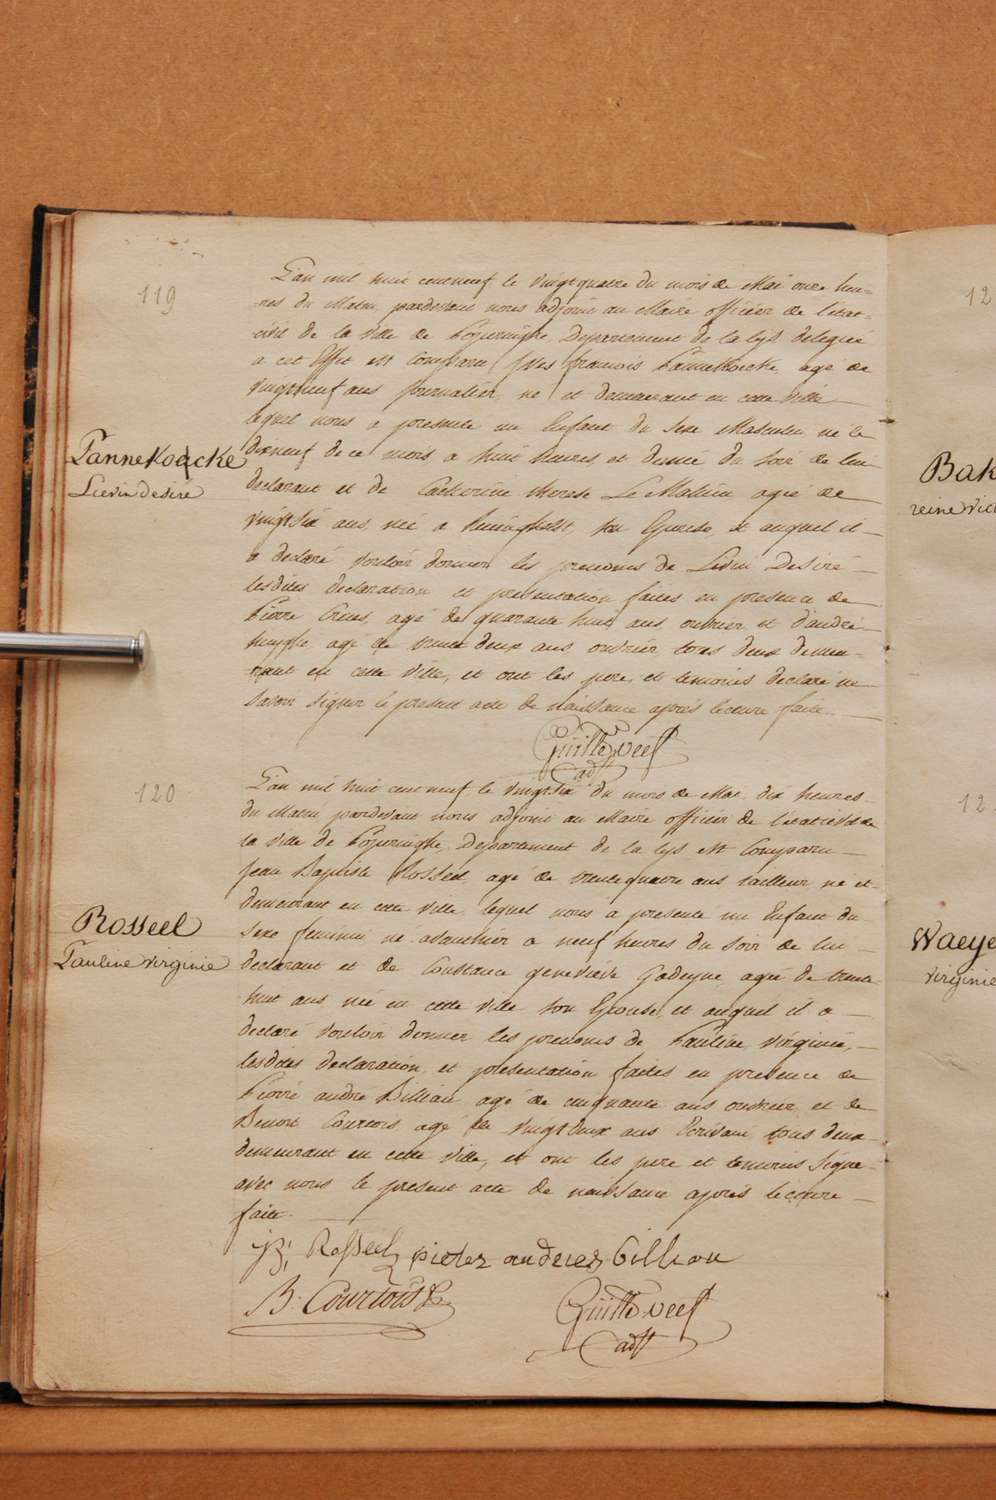 119
L'an mil huit cent neuf le vingt quatre du mois de Mai onze heu=
=res du Matin pardevant nous adjoint au Maire officier de l'etat-
civil de la ville de Poperinghe, Departement de la lys delegué
a cet Effet est Comparu Yves francois Pannekoecke, agé de
vingt neuf ans Journalier, né et demeurant en cette Ville
lequel nous a presenté un Enfant du Sexe Masculin né le
Pannekoecke
dixneuf de ce mois a huit heures et demie du soir de lui
Lievin desiré
declarant et de Catherine therese Le Mahieu agée de
vingt six ans née a Reninghelst, son Epouse, et auquel il
a declaré vouloir donner les prenoms de Lievin Desiré
lesdites declaration et presentation faites en presence de
Pierre agé de quarante huit ans, ouvrier et d'andré
huyghe agé de trente deux ans ouvrier tous deux demeu-
rant en cette Ville, et ont les pere et temoins declaré ne
savoir signer le present acte de Naissance après lecture faite.
Guille. Veef
adjt
120
L'an mil huit cent neuf le vingt six du mois de Mai dix heures
du Matin pardevant nous adjoint au Maire officier de l'etat civil de
la ville de Poperinghe, Departement de la lys est Comparu
Jean Baptiste Rosseel agé de trente quatre ans tailleur né et
demeurant en cette Ville, lequel nous a presenté un Enfant du
Rosseel
sexe feminin né avanthier a neuf heures du soir de lui
Pauline Virginie
declarant et de Constance genevieve Godeyne agée de trente
huit ans née en cette Ville son Epouse, et auquel il a
declaré vouloir donner les prenoms de Pauline, Virginie,
lesdites declaration et presentation faites en presence de
Pierre andré Billiau agé de cinquante ans ouvrier, et de
Benoit Courtois agé de vingt deux ans Ecrivain tous deux
demeurant en cette Ville, et ont les pere et temoins Signé
avec nous le present acte de naissance après lecture
faite.
JB, Rosseel pieter andries billiau
B. Courtois
Guille. Veef
adjt
12
Bak
reine vic
12
Waeye
virginie